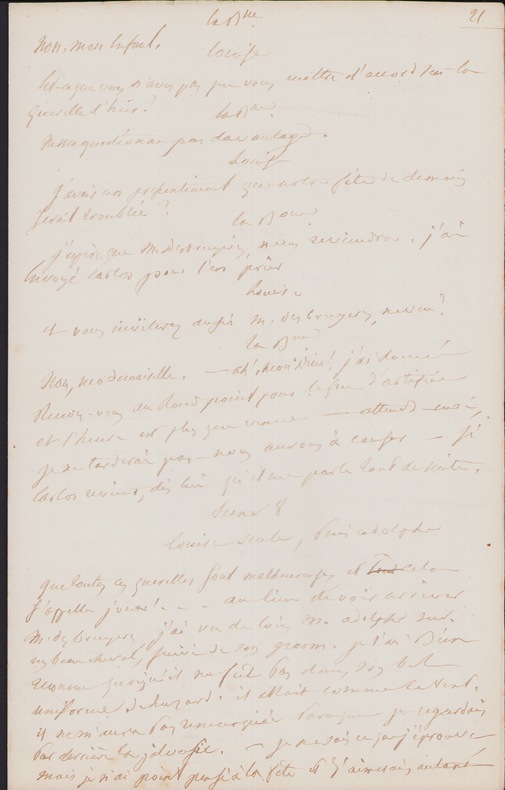 21
la Bne
Non, mon enfant.
Louise
Est-ce que vous n'avez pas pu vous mettre d'accord sur la
querelle d'hier ?
la Bne
Ne me questionne pas davantage.
Louise
J'avais un pressentiment que notre fête de demain
serait troublée ?
la Bonne
J'espère que M. desbruyères nous reviendra, j'ai
envoyé Carlos pour l'en prier
Louise
et vous inviterez aussi M. desbruyeres, neveu ?
la Bne
Non, mademoiselle. — ah ! mon dieu ! j'ai donné
rendez-vous au point pour
et l'heure est plus que venue — attends-moi,
je ne tarderai pas — nous aurons à causer — si
Carlos revient, dis lui qu'il me parle tout de suite.
Scene 8
Louise seule, puis adolphe
que toutes ces querelles sont malheureuses et cela
s'appelle jouer ! - - - au lieu de voir arriver
M. desbruyeres j'ai vu de loin M. adolphe sur
un beau cheval, suivi de son groom. je l'ai bien
reconnu quoiqu'il ne fût pas dans son bel
uniforme de hussard. il allait comme le vent.
il ne m'aura pas remarquée parceque je regardais
par derrière la jalousie. — je ne sais ce que j'éprouve
mais je n'ai point pensé à la fête et j'aimerais autant